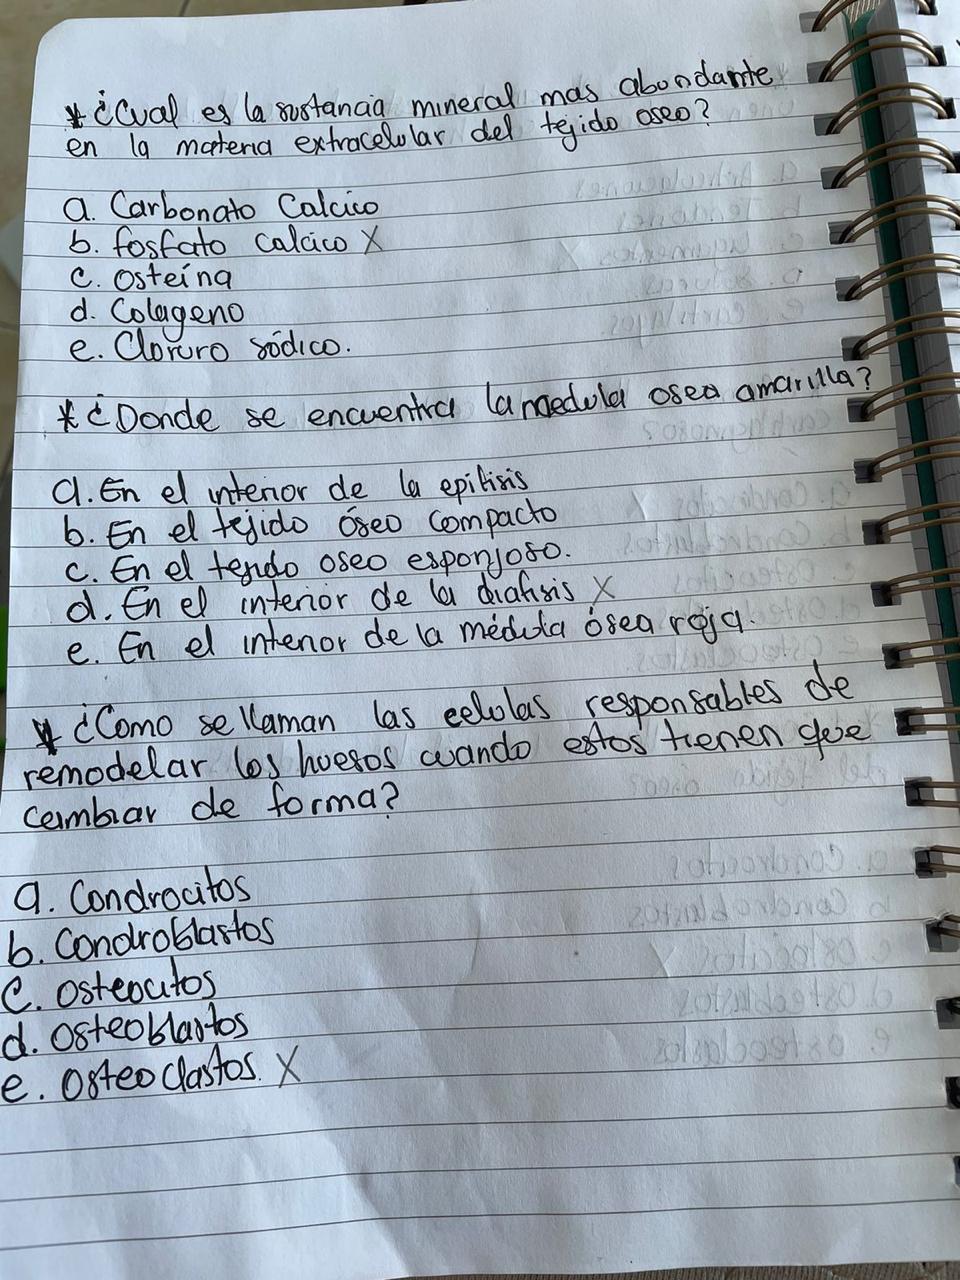 * ¿Cual es la sustancia mineral mas abundante
en la materia extracelular del tejido oseo?
a. Carbonato Calcico
b. fosfato calcico X
c. osteína
d. Colageno
e. Cloruro sódico.
* ¿Donde se encuentra la medula osea amarilla?
a. En el interior de la epifisis
b. En el tejido óseo compacto
c. En el tejido oseo esponjoso.
d. En el interior de la diafisis X
e. En el interior de la médula ósea roja.
* ¿Como se llaman las celulas responsables de
remodelar los huesos cuando estos tienen que
cambiar de forma?
a. Condrocitos
b. Condroblastos
c. osteocitos
d. osteoblastos
e. osteoclastos. X